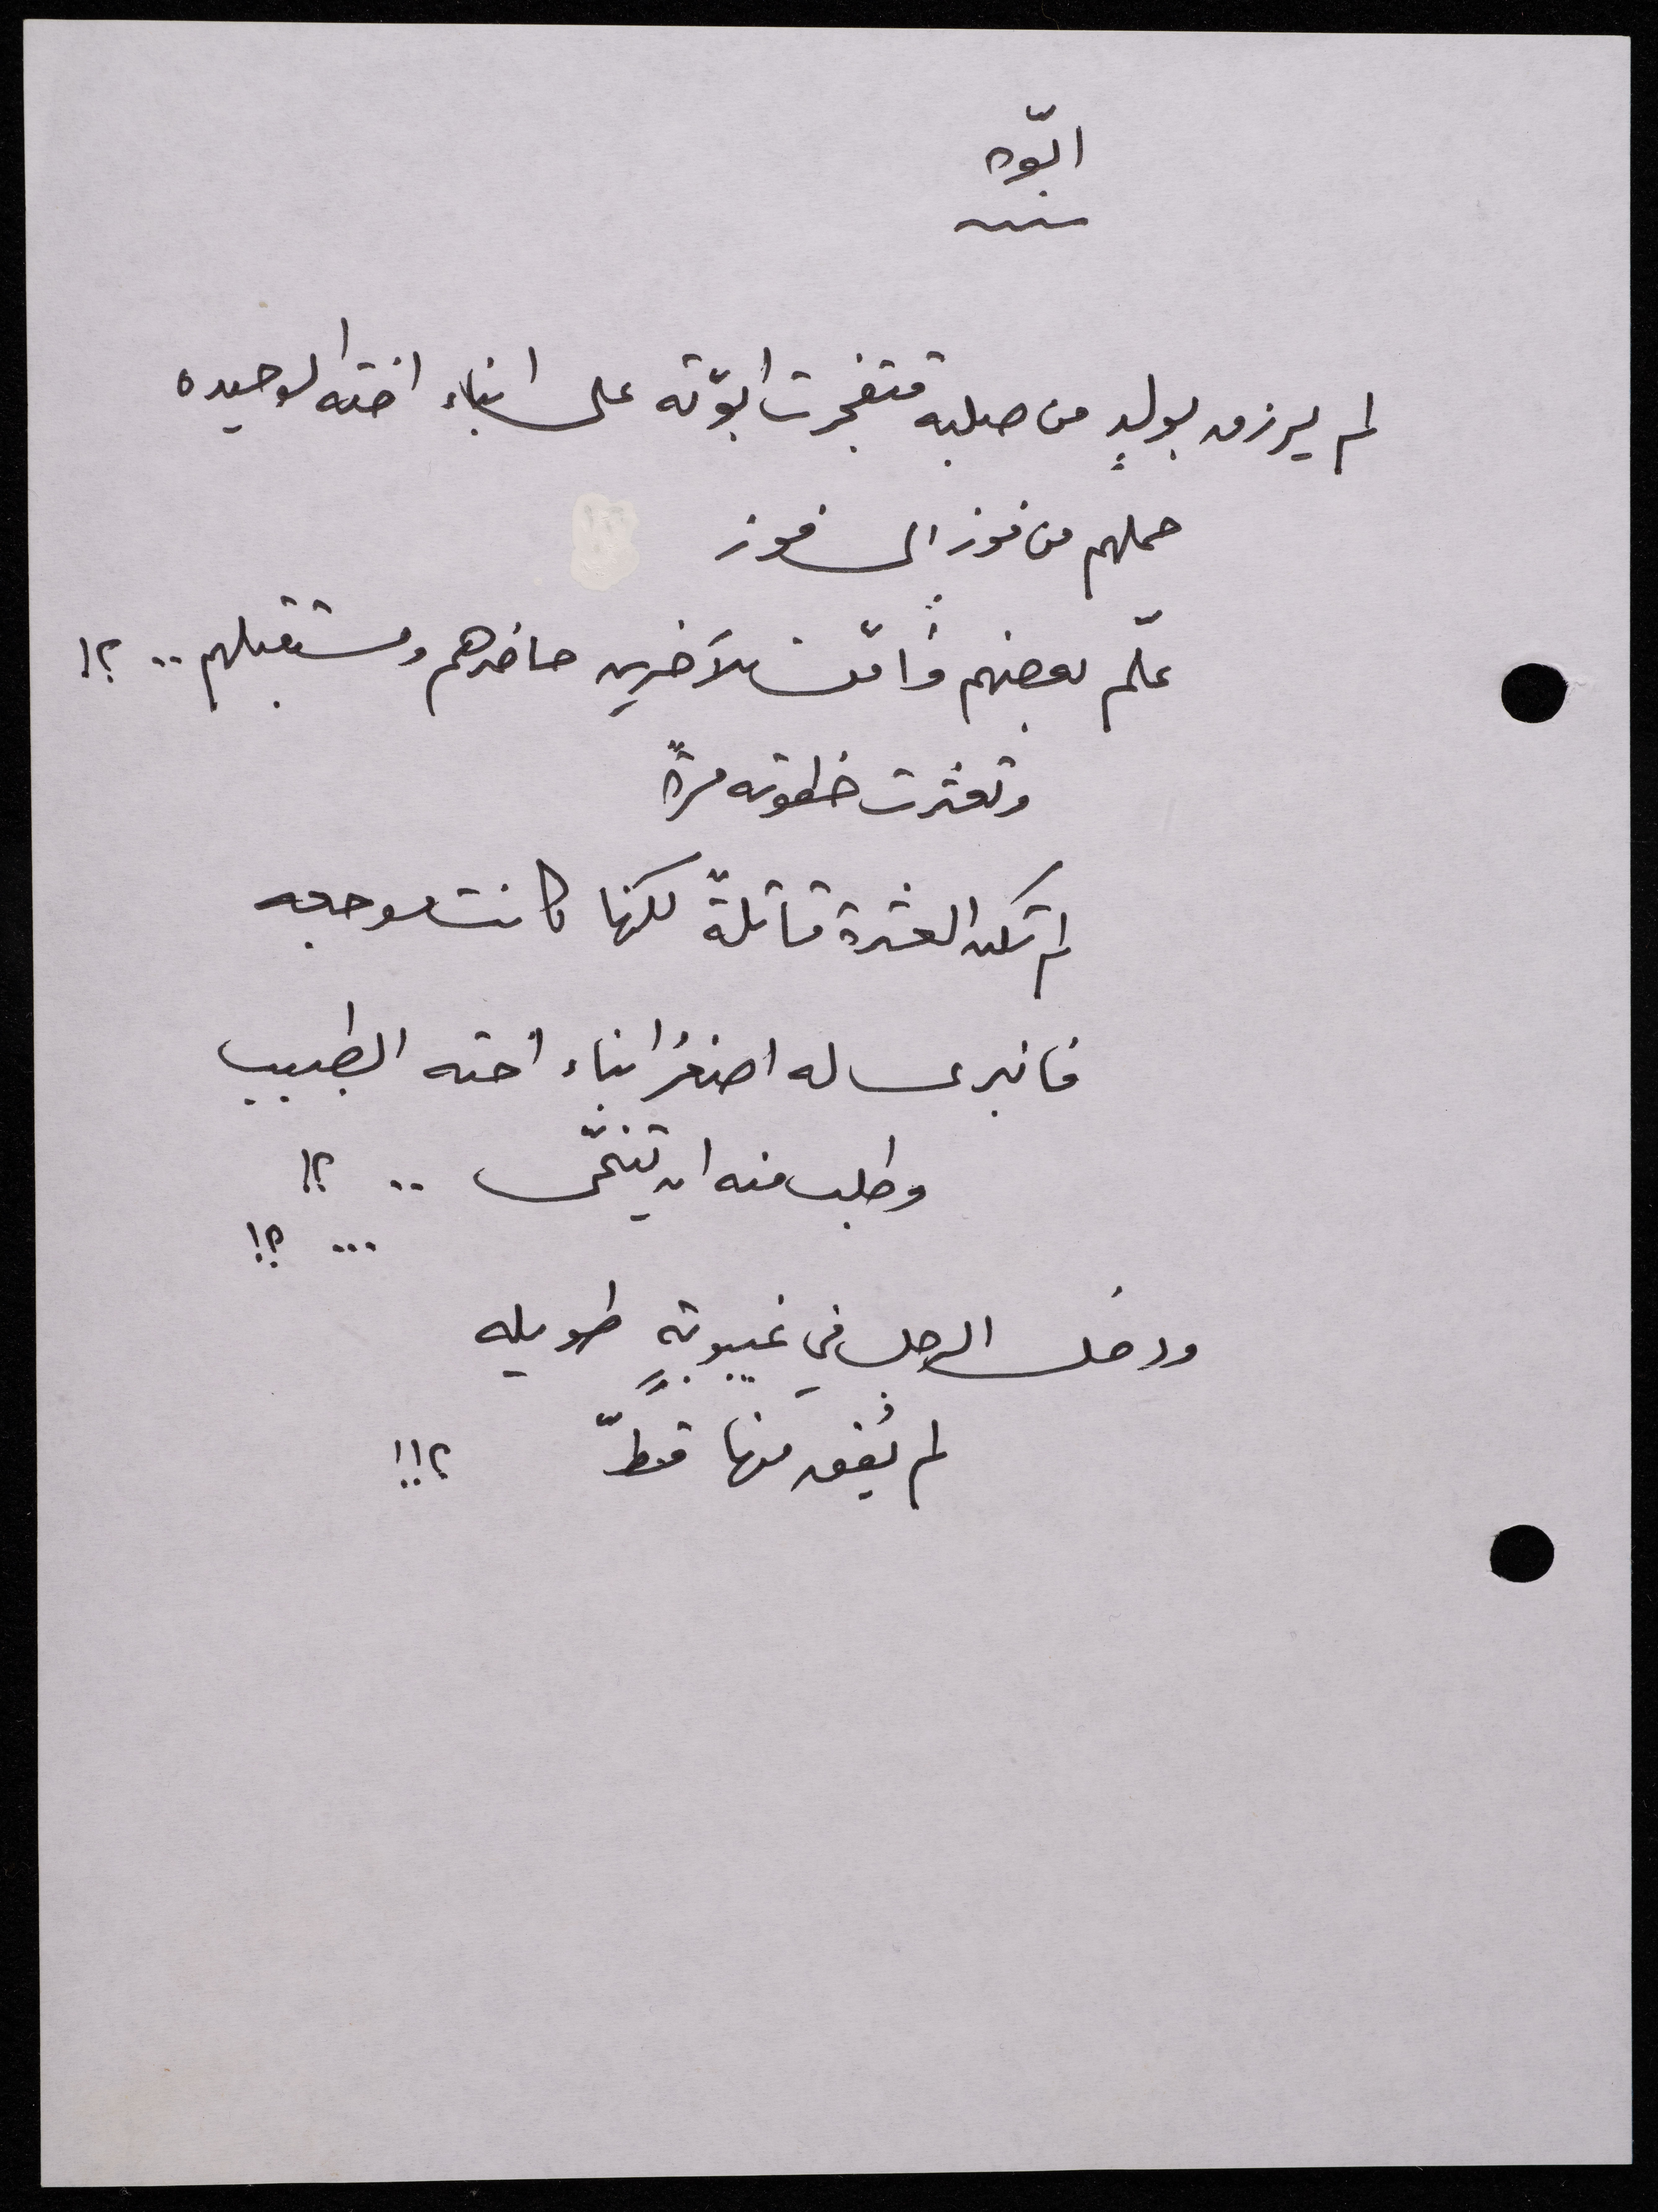 ابوّه
لم يرزق بولدٍ من صلبه فتفجرت ابوّته على ابناء اخته الوحيده
حملهم من فوز الى فوز
علّم بعضهم وأمّن للآخرين حاضرهم ومستقبلهم .. ؟!
وتعثرت خطوته مرةً
لم تكن العثرة قاتلةً لكنها كانت موجعه
فانبرى له اصغرُ ابناء اخته الطبيب
وطلب منه ان يتنحّى .. ؟!
... ؟!
ودخل الرجل في غيبوبةٍ طويله
لم يُفق منها قطّ ؟!!